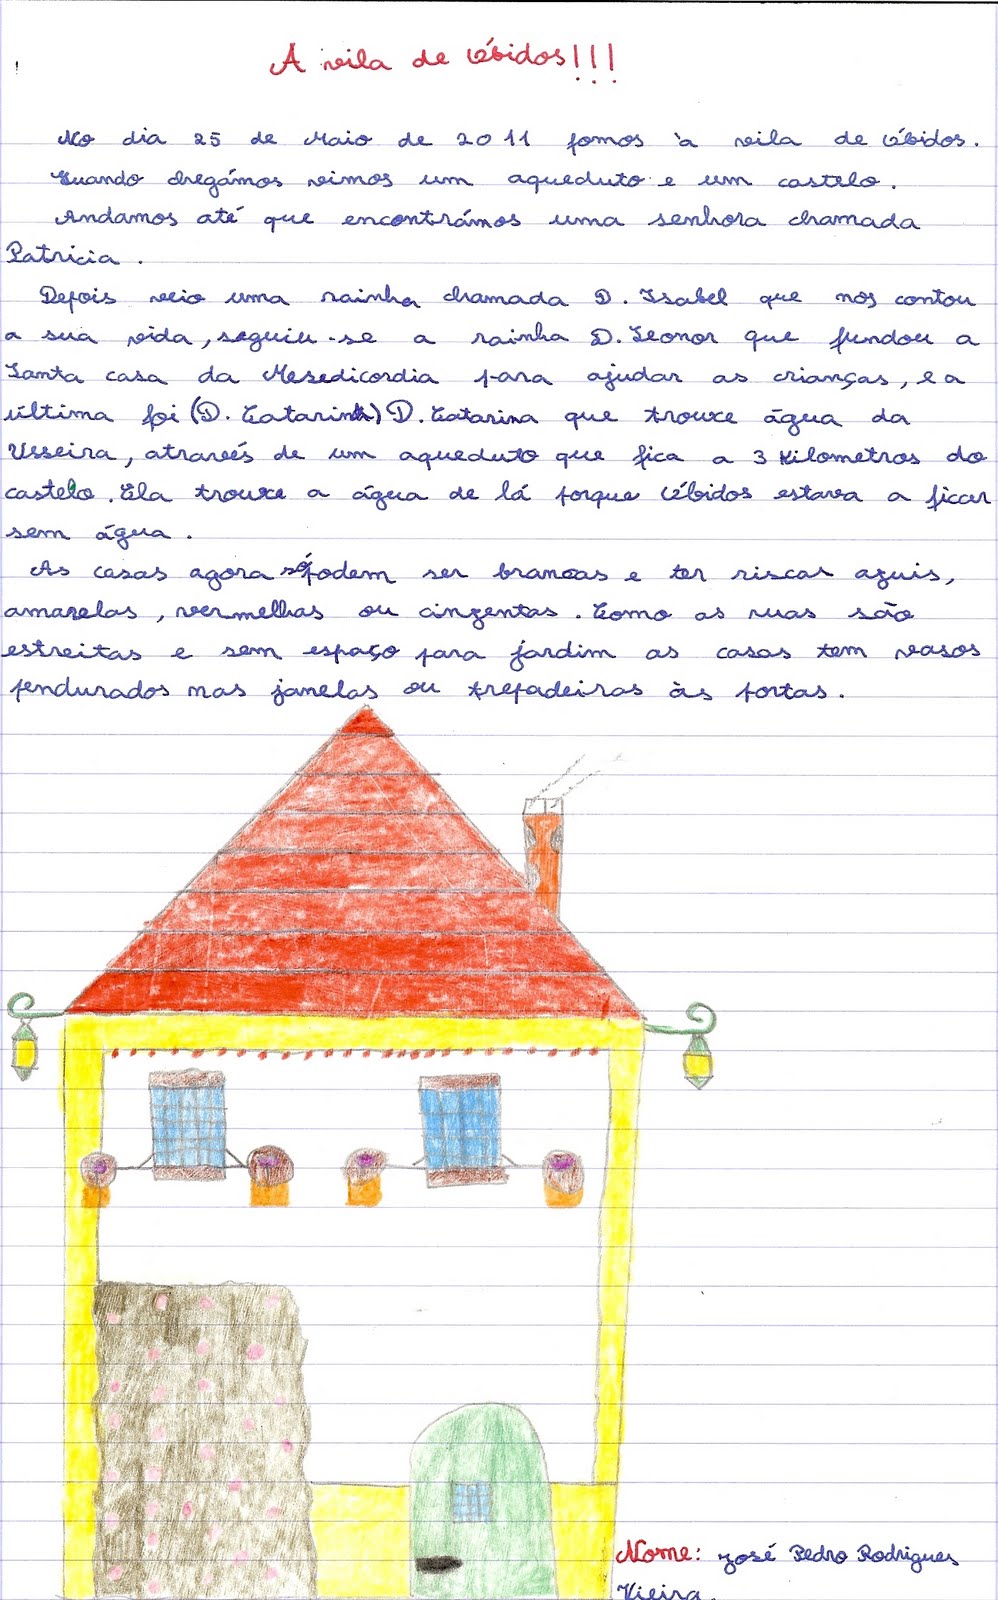 A vila de Óbidos!!!
No dia 25 de Maio de 2011 fomos à vila de Óbidos.
Quando chegámos vimos um aqueduto e um castelo.
Andamos até que encontrámos uma senhora chamada
Patricia.
Depois veio uma rainha chamada D. Isabel que nos contou
a sua vida, seguiu-se a rainha D. Leonor que fundou a
Santa casa da Mesedicordia para ajudar as crianças, e a
última foi (D. Catarina) D. Catarina que trouxe água da
Usseira, através de um aqueduto que fica a 3 Kilometros do
castelo. Ela trouxe a água de lá porque Óbidos estava a ficar
sem água.
As casas agora só podem ser brancas e ter riscas azuis,
amarelas, vermelhas ou cinzentas. Como as ruas são
estreitas e sem espaço para jardim as casas tem vasos
pendurados nas janelas ou trepadeiras às portas.
Nome: José Pedro Rodrigues
Vieira.